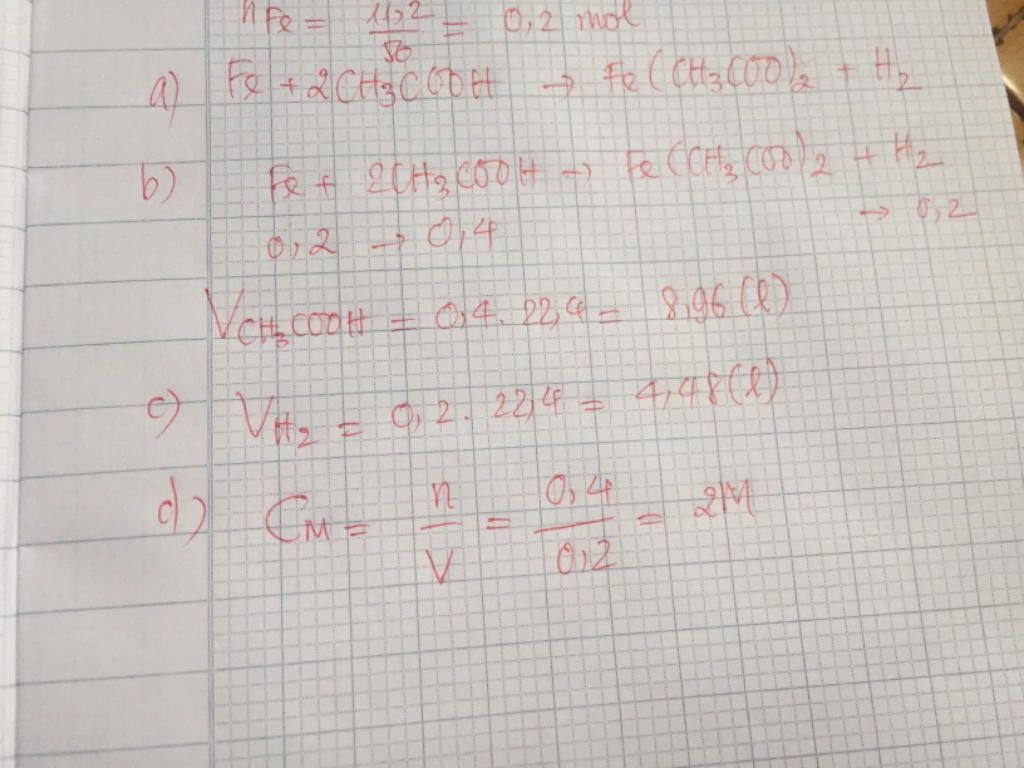 nFe = 11,2/56 = 0,2 mol
a) Fe + 2CH3COOH → Fe(CH3COO)2 + H2
b) Fe + 2CH3COOH → Fe(CH3COO)2 + H2
0,2 → 0,4 → 0,2
VCH3COOH = 0,4 . 22,4 = 8,96 (l)
c) VH2 = 0,2 . 22,4 = 4,48 (l)
d) CM = n/V = 0,4/0,2 = 2M